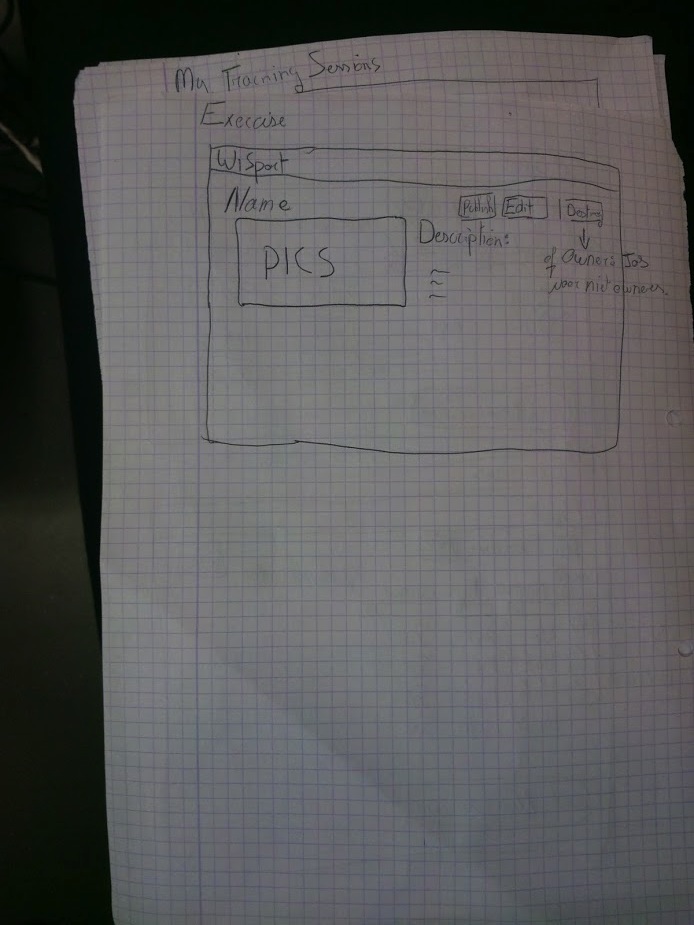 My Training Sessions
Exercise
WiSport
Name
Publish Edit Destroy
PICS
Description:
of owners